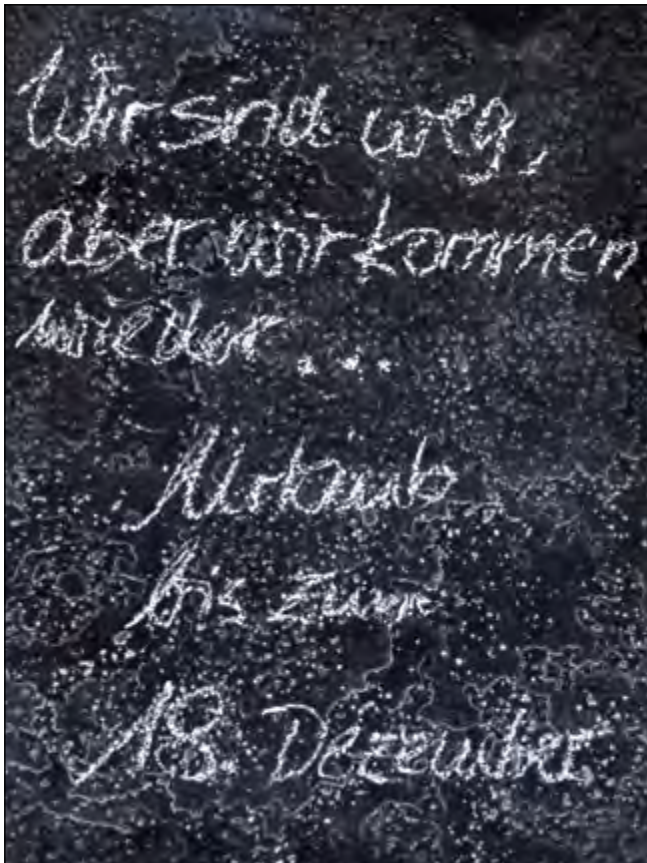 Wir sind weg,
aber wir kommen
wieder...
Urlaub
bis zum
18. Dezember